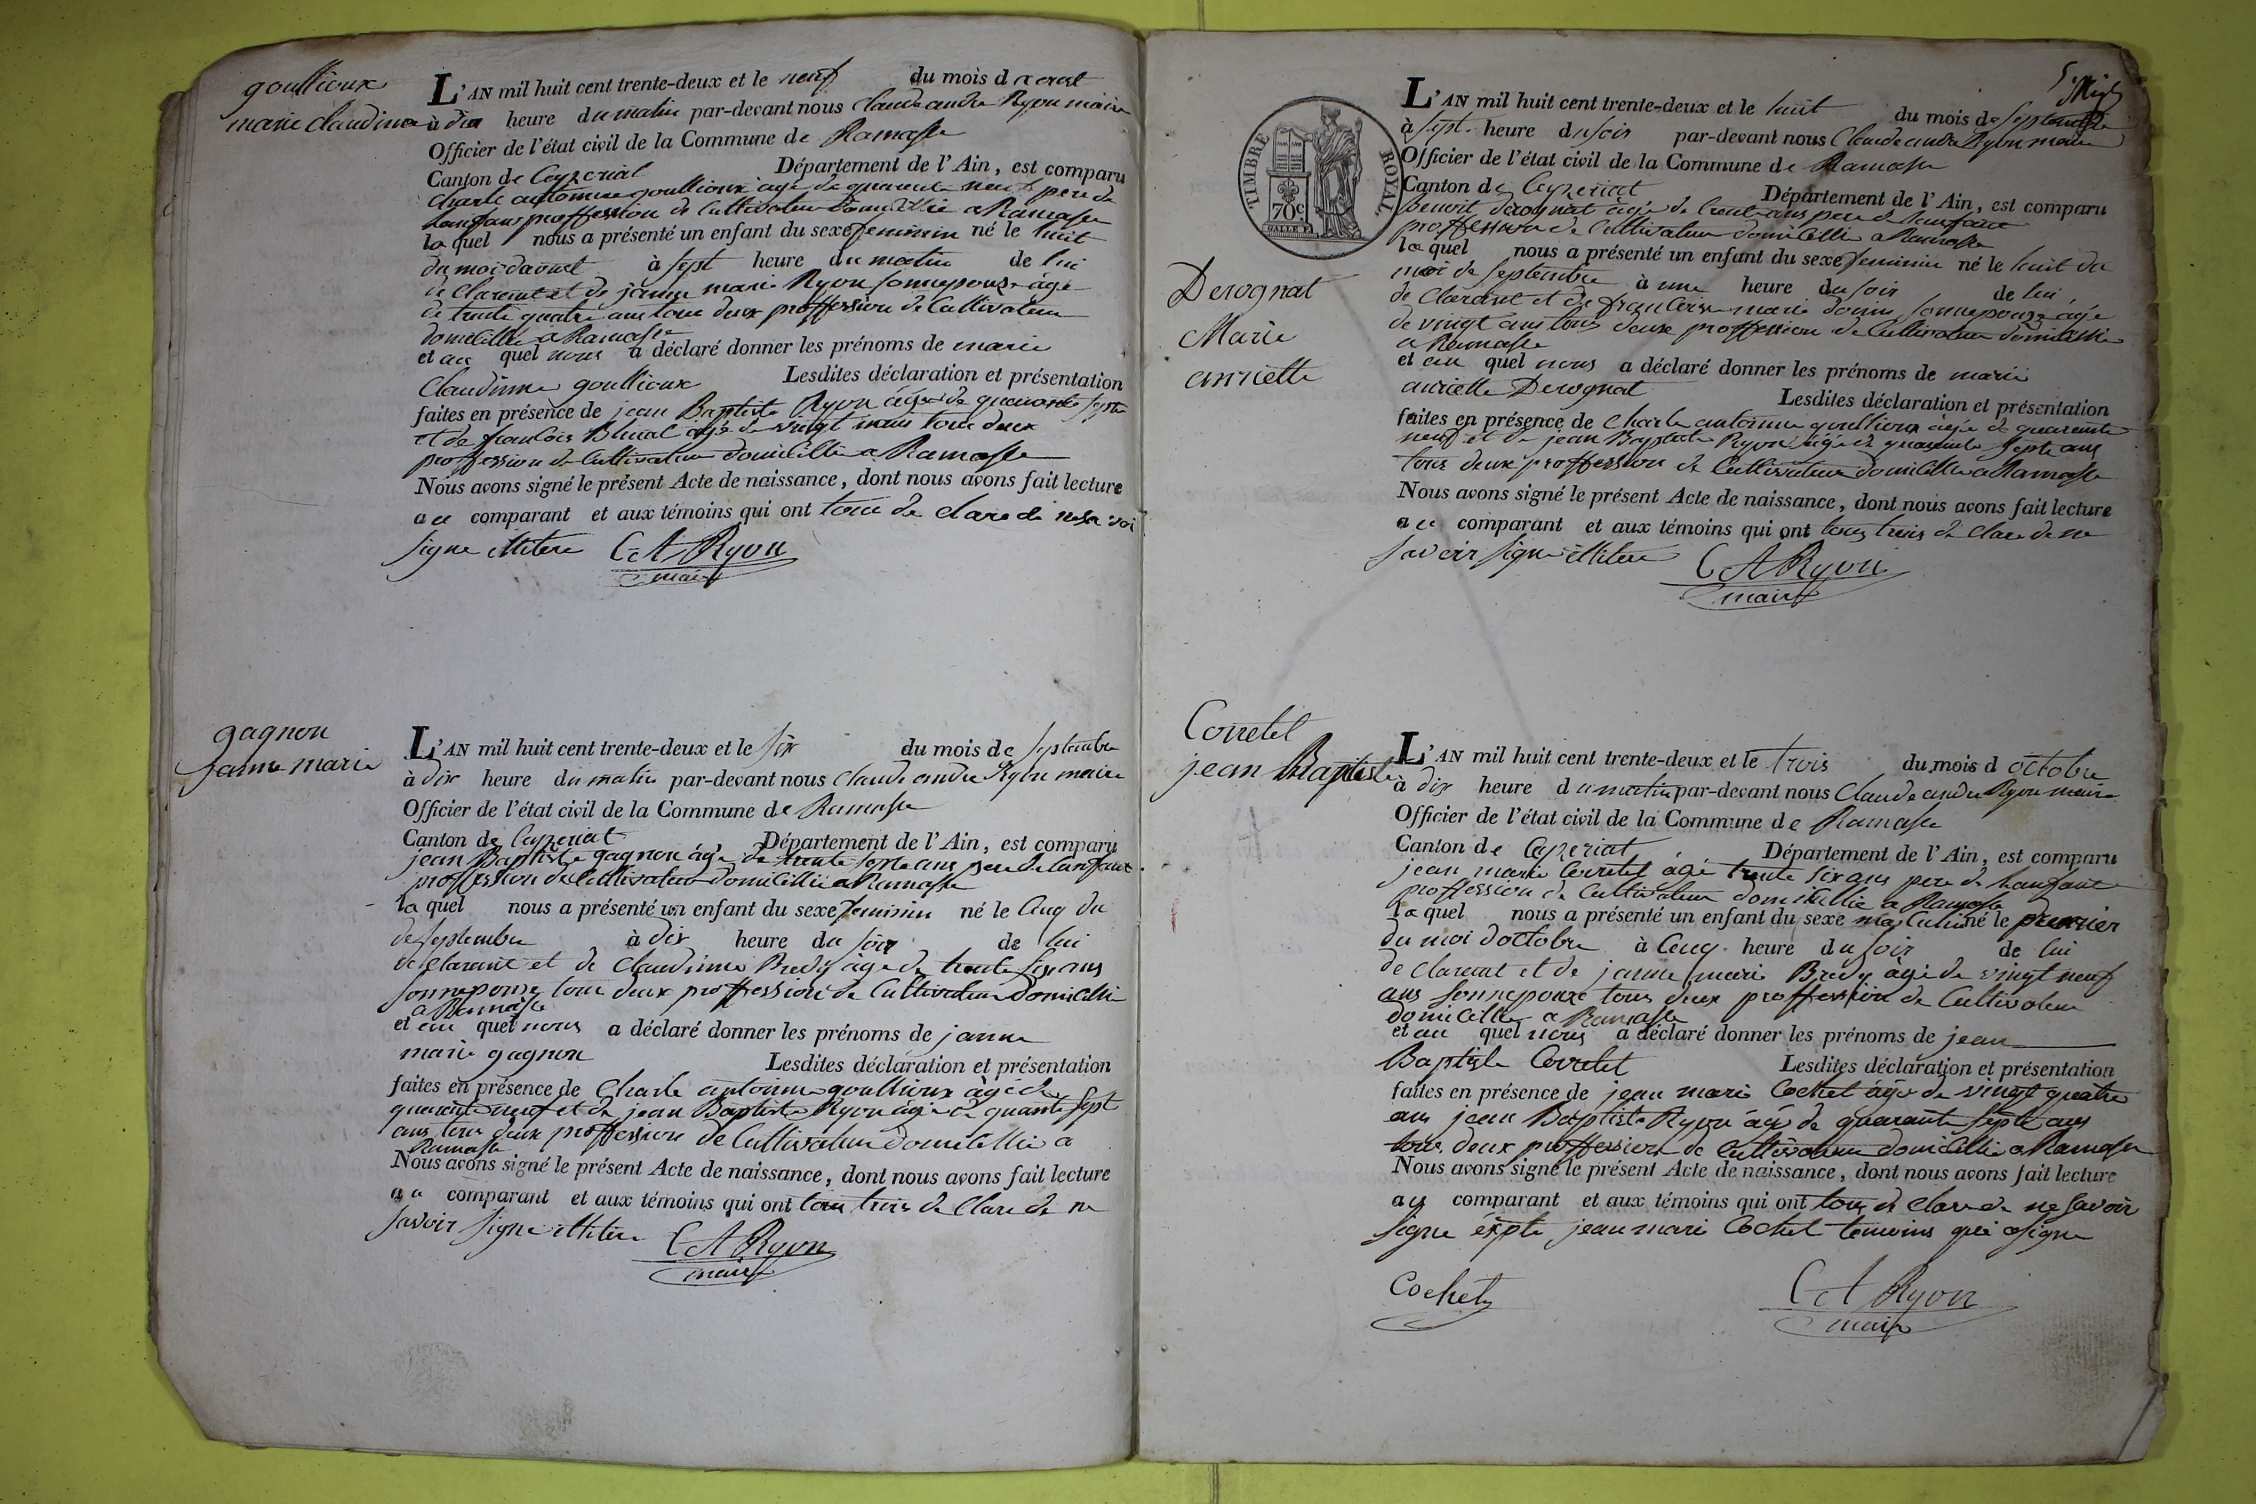 goullioux
marie claudinne
L'AN mil huit cent trente-deux et le neuf du mois d aoust
à dix heure du matin par-devant nous claude andre Ryon maire
Officier de l'état civil de la Commune de Ramasse
Canton de Ceyzeriat Département de l'Ain, est comparu
Charle antoinne goullioux agé de quarente neuf pere de
lanfant proffession de Cultivateur domicillié a Ramasse
la quel nous a présenté un enfant du sexe feminin né le huit
du moi daoust à sept heure du matin de lui
de clarant et de janne marie Ryon sonnepouse âgé
de trante quatre ans tous deux proffession de Cultivateur
domicillié a Ramasse
et au quel nous a déclaré donner les prénoms de marie
Claudinne goullioux Lesdites déclaration et présentation
faites en présence de jean Baptiste Ryon âgé de quarante septe
et de francois agé de vingt tous deux
proffession de Cultivateur domicillié a Ramasse
Nous avons signé le présent Acte de naissance, dont nous avons fait lecture
au comparant et aux témoins qui ont tous de clare de ne savoir
signe CA Ryon
maire
gagnon
janne marie
L'AN mil huit cent trente-deux et le six du mois de septembre
à dix heure du matin par-devant nous Claude andre Ryon maire
Officier de l'état civil de la Commune de Ramasse
Canton de Ceyzeriat Département de l'Ain, est comparu
jean Baptiste gagnon âgé de trente septe ans pere de lanfant
proffession de Cultivateur domicillié a Ramasse
la quel nous a présenté un enfant du sexe feminin né le Cinq du
de septembre à dix heure du soir de lui
de clarant et de claudinne Bredy âgé de trente six ans
sonnepouse tous deux proffession de Cultivateur domicillié
a Ramasse
et au quel nous a déclaré donner les prénoms de janne
marie gagnon Lesdites déclaration et présentation
faites en présence de Charle antoinne goullioux âgé de
quarente neuf et de jean Baptiste Ryon âgé de quante sept
ans tous deux proffession de Cultivateur domicillié a
Ramasse
Nous avons signé le présent Acte de naissance, dont nous avons fait lecture
au comparant et aux témoins qui ont tous trois de Clare de ne
savoir signe CA Ryon
maire
TIMBRE ROYAL
70c
5
Derognat
Marie
anriette
L'AN mil huit cent trente-deux et le huit du mois de septembre
à sept heure du soir par-devant nous Claude andre Ryon maire
Officier de l'état civil de la Commune de Ramasse
Canton de Ceyzeriat Département de l'Ain, est comparu
Benoit derognat âgé de trente ans pere de lanfant
proffession de Cultivateur domicillié a Ramasse
la quel nous a présenté un enfant du sexe feminin né le huit du
moi de septembre à une heure du soir de lui
de clarant et de francoise marie sonnepouze âgé
de vingt ans tous deux proffession de Cultivateur domicillié
a Ramasse
et au quel nous a déclaré donner les prénoms de marie
anriette Derognat Lesdites déclaration et présentation
faites en présence de Charle antoinne goullioux âgé de quarente
neuf et de jean Baptiste Ryon âgé de quarente septe ans
tous deux proffession de Cultivateur domicillié a Ramasse
Nous avons signé le présent Acte de naissance, dont nous avons fait lecture
au comparant et aux témoins qui ont tous trois de Clare de ne
savoir signe CA Ryon
maire
Corretel
jean Baptiste
L'AN mil huit cent trente-deux et le trois du mois d octobre
à dix heure du matin par-devant nous Claude andre Ryon maire
Officier de l'état civil de la Commune de Ramasse
Canton de Ceyzeriat Département de l'Ain, est comparu
jean marie Corretel âgé trente six ans pere de lanfant
proffession de Cultivateur domicillié a Ramasse
la quel nous a présenté un enfant du sexe masculin né le premier
du moi doctobre à Cinq heure du soir de lui
de clarant et de janne marie Bredy âgé de vingt neuf
ans sonnepouze tous deux proffession de Cultivateur
domicillié a Ramasse
et au quel nous a déclaré donner les prénoms de jean
Baptiste Corretel Lesdites déclaration et présentation
faites en présence de jean marie Cochet âgé de vingt quatre
ans jean Baptiste Ryon âgé de quarante septe ans
tous deux proffession de Cultivateur domicillié a Ramasse
Nous avons signé le présent Acte de naissance, dont nous avons fait lecture
au comparant et aux témoins qui ont tous de clare de ne savoir
signe jean marie Cochet temoins qui a signe
Cochet CA Ryon
maire